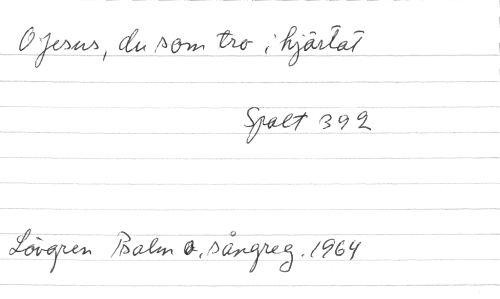 O Jesus, du som tro i hjärtat
Spalt 392
Lövgren Psalm o. sångreg. 1964